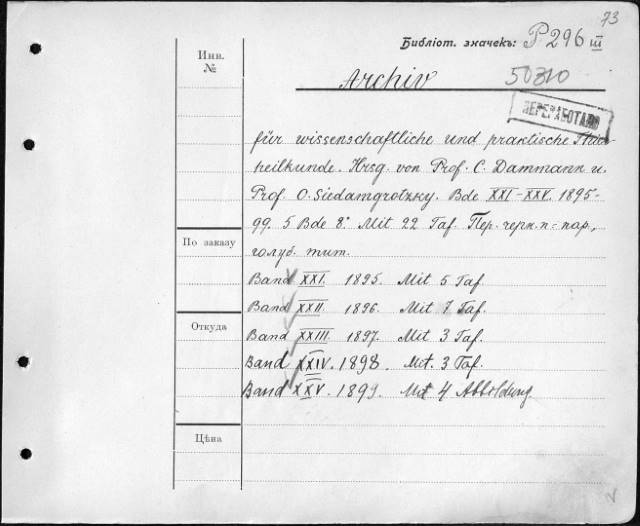 73
Библіот. значекъ: P 296 III
Инв. №
50310
Archiv
ПЕРЕРАБОТАНО
für wissenschaftliche und praktische Thier-
heilkunde. Hrsg. von Prof. C. Dammann u.
Prof. O. Siedamgrotzky. Bde XXI-XXV. 1895-
99. 5 Bde 8°. Mit 22 Taf. Пер. черн. п-пар,
По заказу
голуб. тит.
Band XXI. 1895. Mit 5 Taf.
Band XXII. 1896. Mit 7 Taf.
Откуда
Band XXIII. 1897. Mit 3 Taf.
Band XXIV. 1898. Mit. 3 Taf.
Band XXV. 1899. Mit 4 Abbildung.
Цѣна